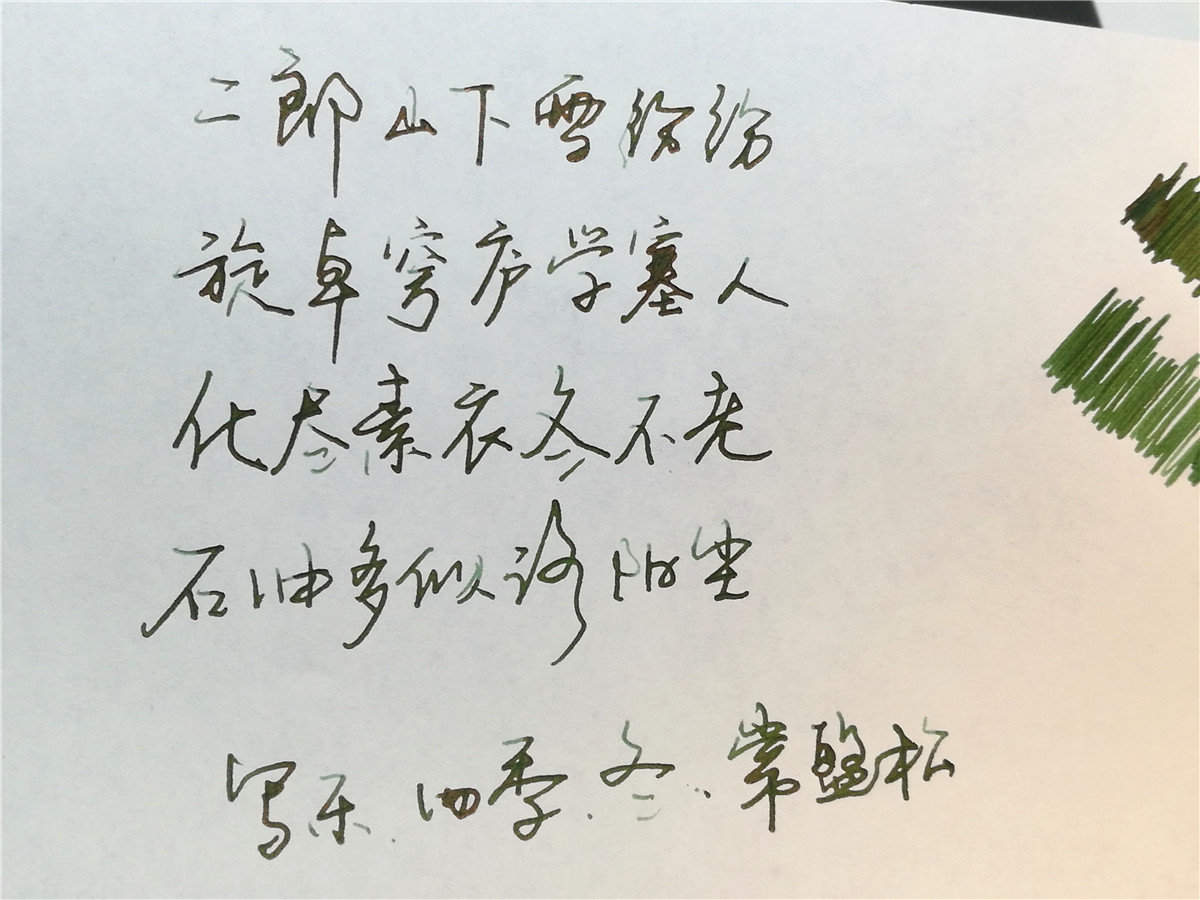 二郎山下雪纷纷
旋卓穹庐学塞人
化尽素衣冬不老
石油多似洛阳尘
写乐.四季.冬.常盤松